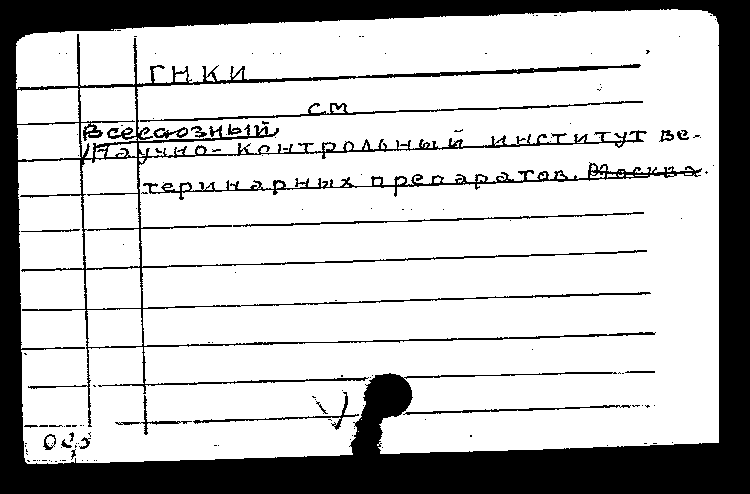 ГНКИ
см
Всесоюзный
Научно-контрольный институт ве-
теринарных препаратов. Москва.